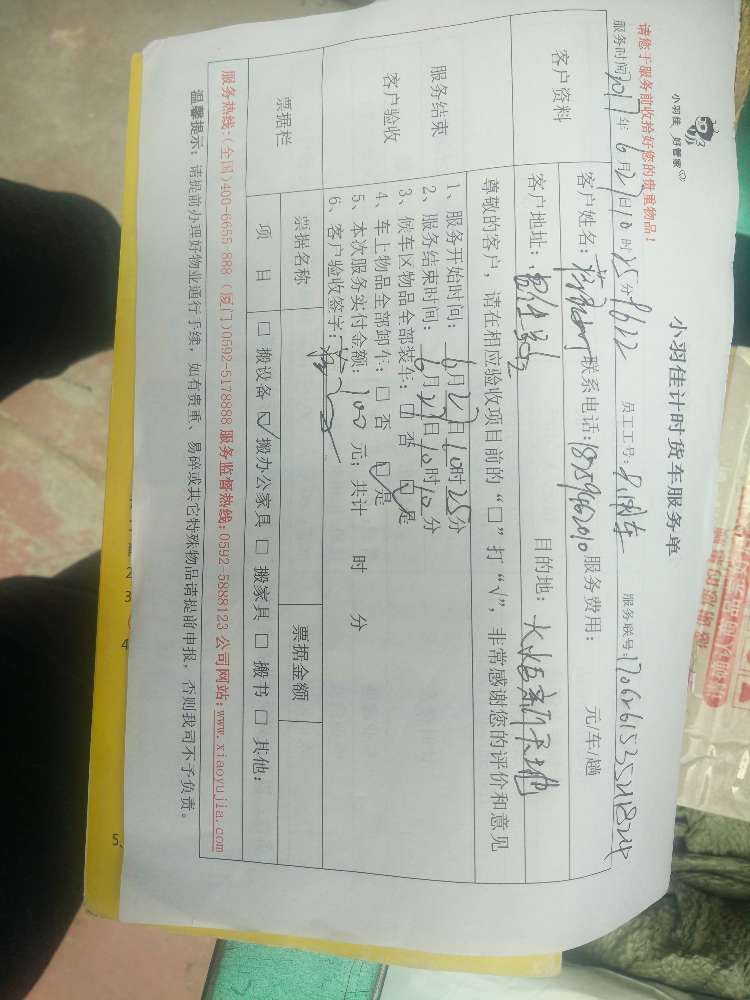 小羽佳 好管家
小羽佳计时货车服务单
请您于服务前收拾好您的贵重物品！
服务时间2017年6月27日10时25分 9622 员工工号: 服务联号:170626153521824
客户资料
客户姓名: 联系电话:18759662010 服务费用: 元/车/趟
客户地址: 目的地:
尊敬的客户，请在相应验收项目前的“□”打“√”，非常感谢您的评价和意见
服务结束
客户验收
1、服务开始时间: 6月27日10时25分
2、服务结束时间: 6月27日10时10分
3、候车区物品全部装车: □ 否 ☑ 是
4、车上物品全部卸车: □ 否 ☑ 是
5、本次服务实付金额: 100 元; 共计 时 分
6、客户验收签字:
票据栏
票据名称 票据金额
项 目 □ 搬设备 ☑ 搬办公家具 □ 搬家具 □ 搬书 □ 其他:
服务热线:(全国)400-6655-888 (厦门)0592-5178888 服务监督热线:0592-5888123 公司网站:www.xiaoyujia.com
温馨提示: 请提前办理好物业通行手续，如有贵重、易碎或其它特殊物品请提前申报，否则我司不予负责。
2
3
4
5、